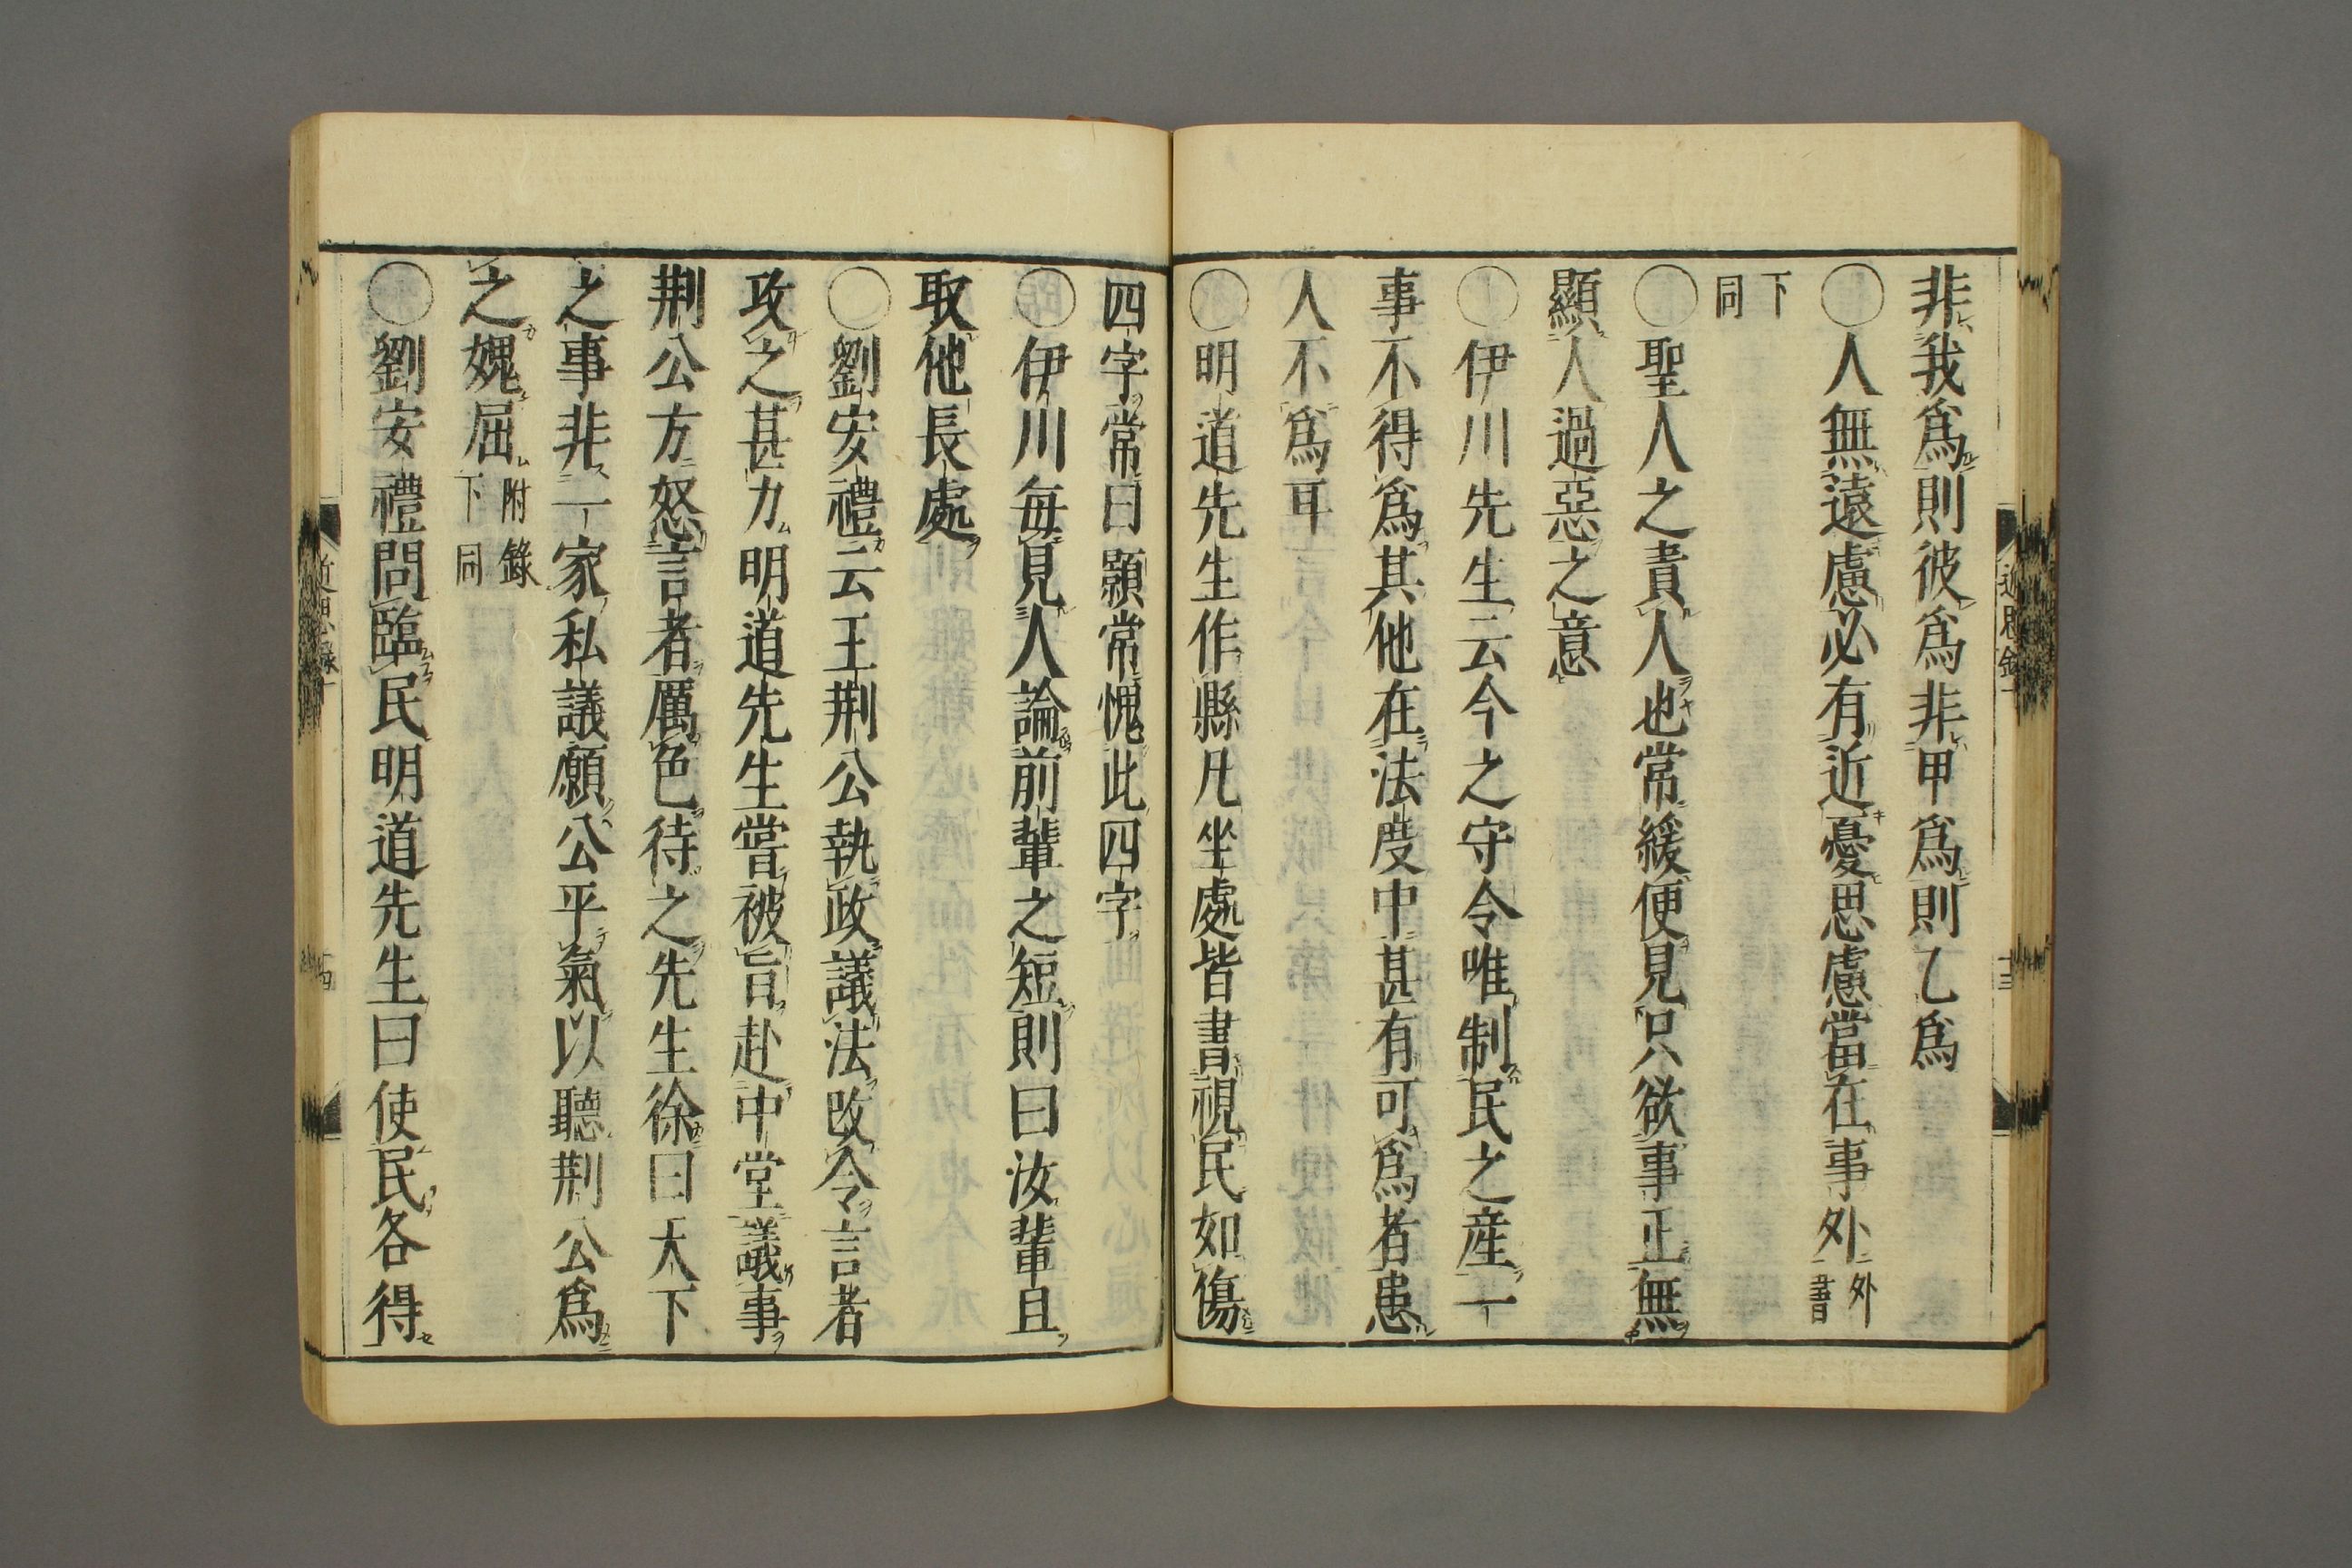 非我爲則彼爲非甲爲則乙爲
○人無遠慮必有近憂思慮當在事外外書
下同
○聖人之責人也常緩便見只欲事正無
顯人過惡之意
○伊川先生云今之守令唯制民之産一
事不得爲其他在法度中甚有可爲者患
人不爲耳
○明道先生作縣凡坐處皆書視民如傷
四字常曰顥常愧此四字
○伊川每見人論前輩之短則曰汝輩且
取他長處
○劉安禮云王荆公執政議法改令言者
攻之甚力明道先生嘗被旨赴中堂議事
荆公方怒言者厲色待之先生徐曰天下
之事非一家私議願公平氣以聽荆公爲
之媿屈附錄下同
○劉安禮問臨民明道先生曰使民各得
近思錄
十三
近思錄
十四